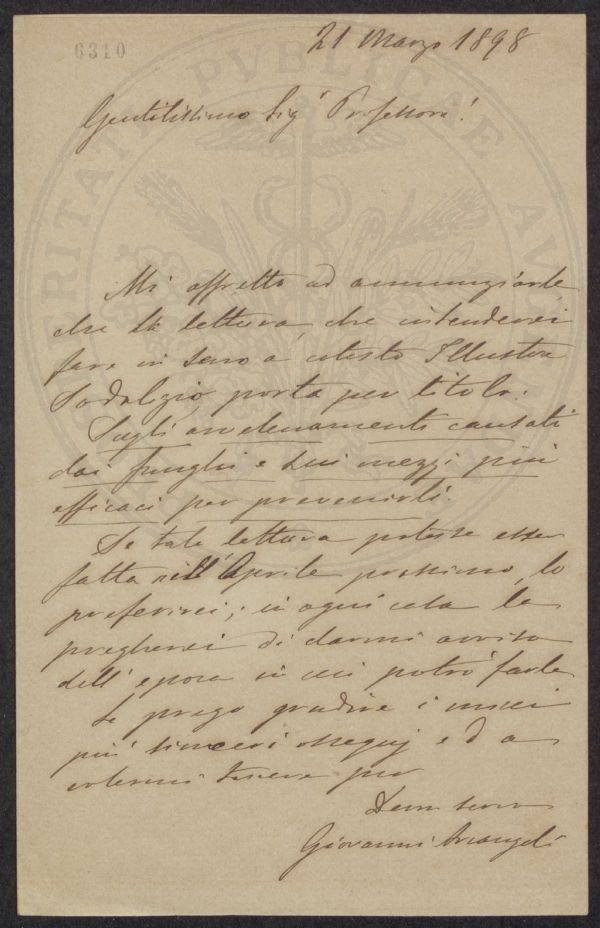 6310
21 Marzo 1898
Gentilissimo Sigr Professore!
Mi affretto ad annunziarle
che la lettura, che intenderei
fare in seno a cotesto Illustre
Sodalizio porta per titolo:
Sugli avvelenamenti causati
dai funghi e sui mezzi più
efficaci per prevenirli.
Se tale lettura potesse esser
fatta nell'Aprile prossimo, lo
preferirei; in ogni caso la
pregherei di darmi avviso
dell'epoca in cui potrò farla
La prego gradire i miei
più sinceri ossequj ed a
volermi tenere per
Devm servo
Giovanni Arcangeli
PVBLICAE